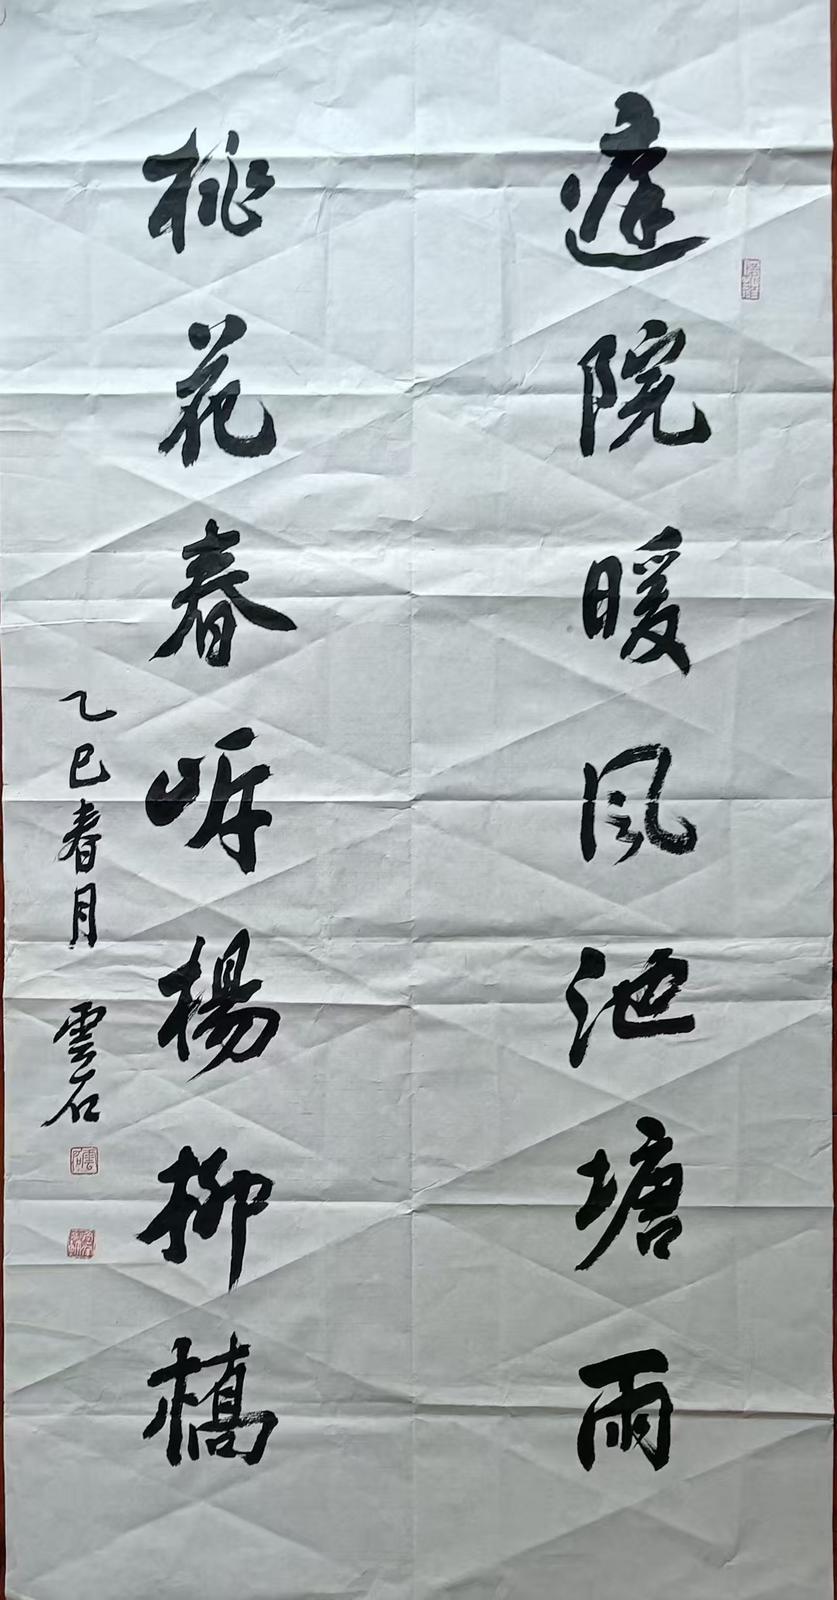 庭院暖風池塘雨
桃花春岸楊柳橋
乙巳春月 雲石
雲石